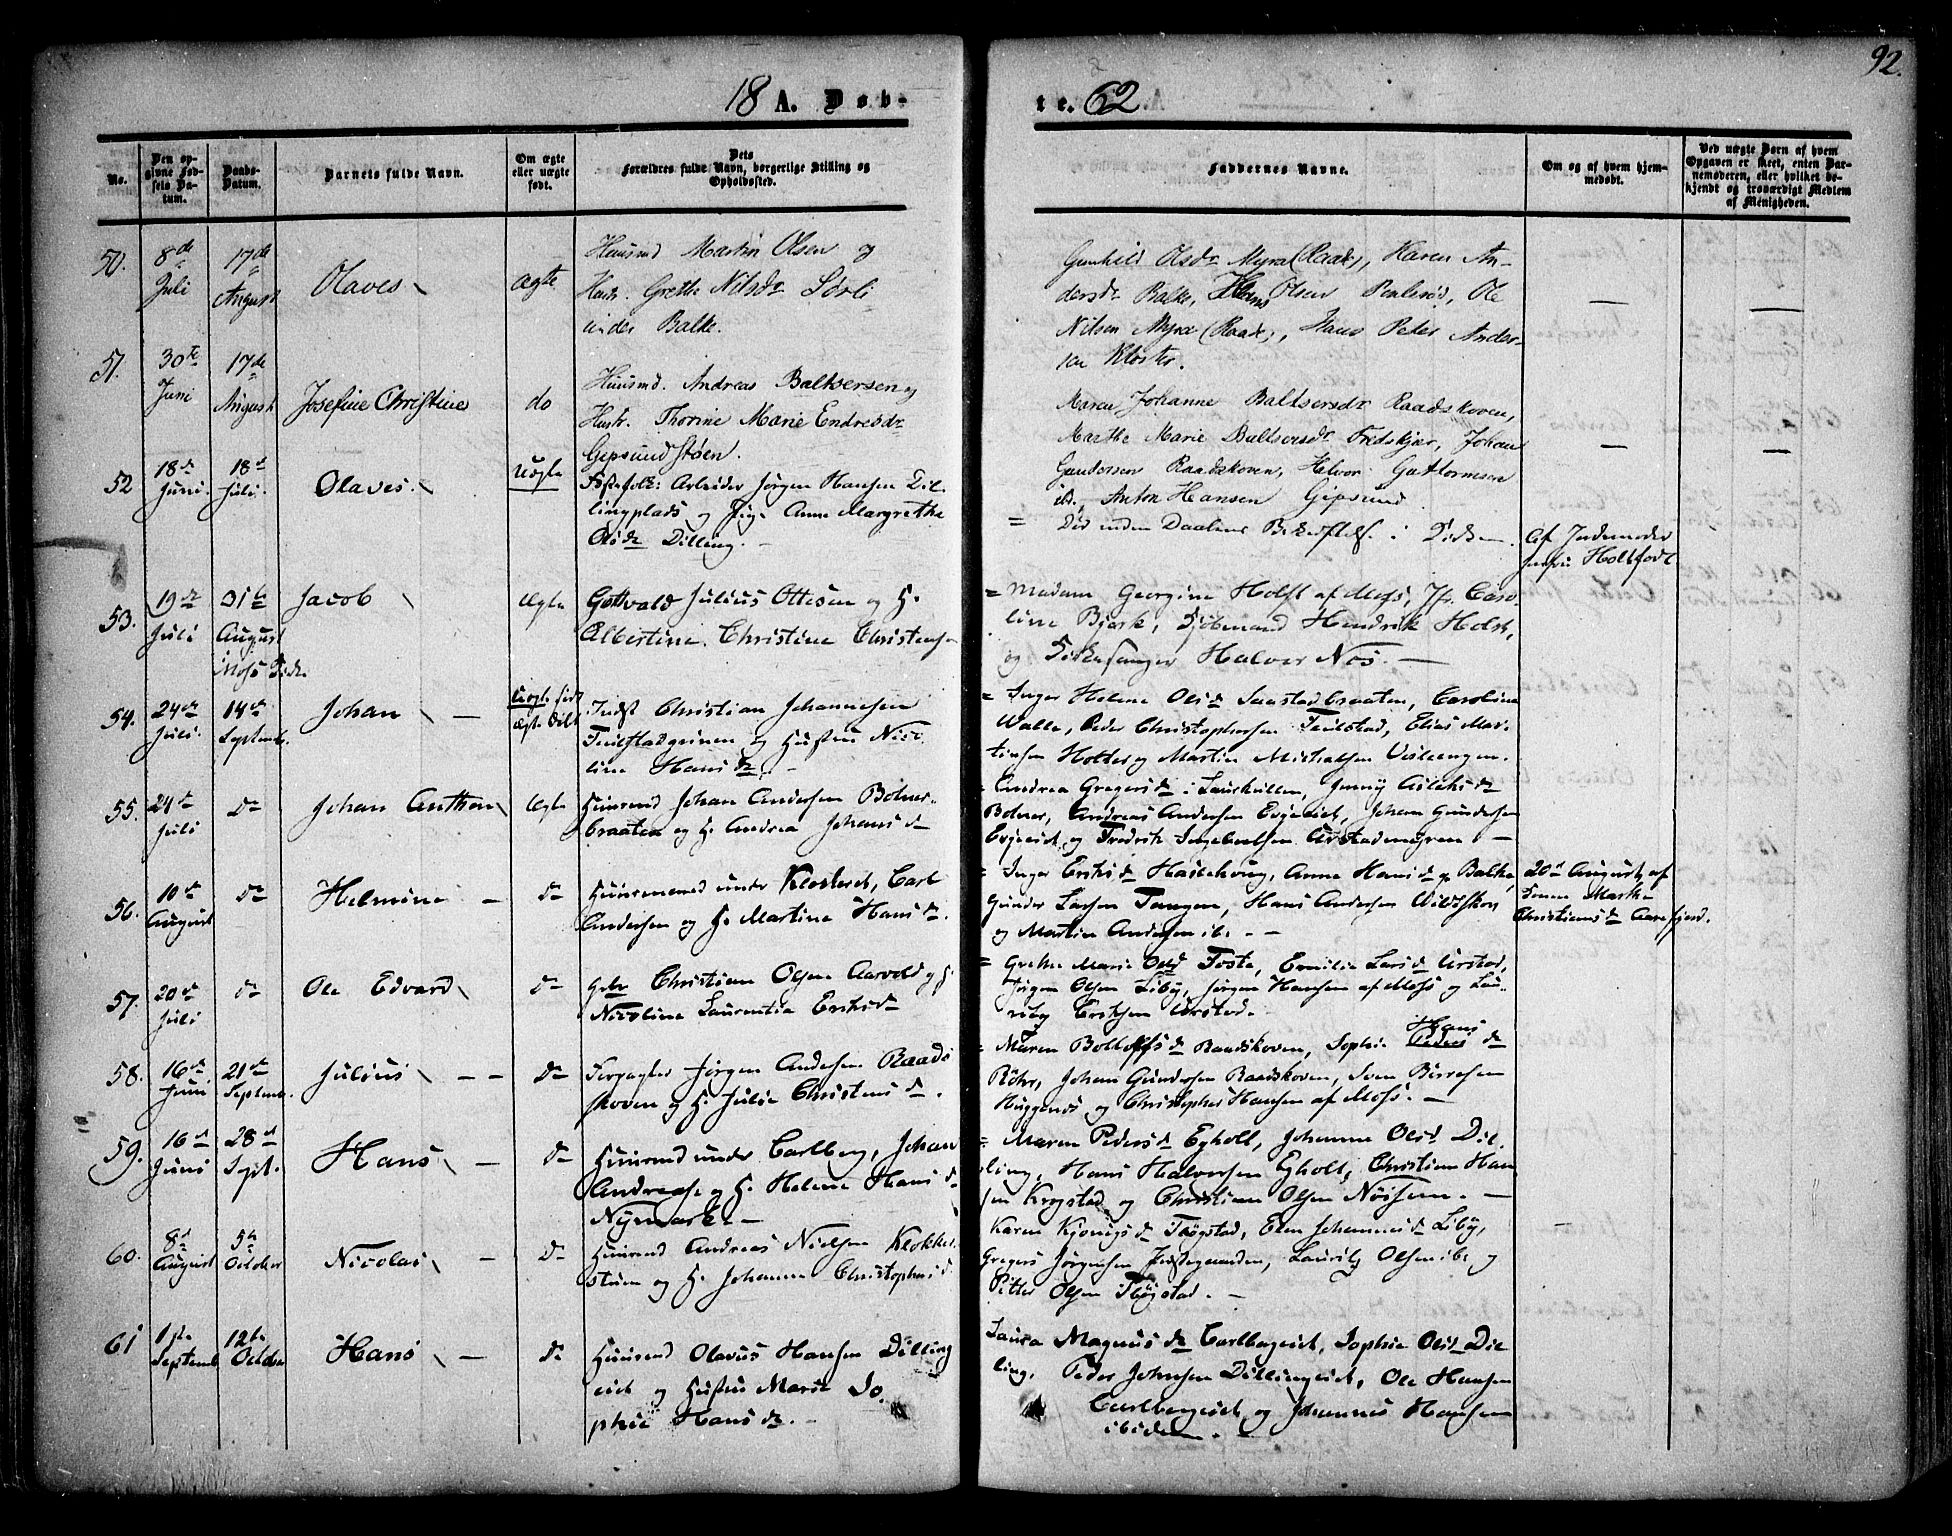 92.
18 A. Døb-
te. 62
No.
Den op-
givne Fød-
sels Da-
tum.
Daabs-
Datum.
Barnets fulde Navn.
Om ægte
eller uægte
født.
Dets
Forældres fulde Navn, borgerlige Stilling og
Opholdssted.
Faddernes Navne.
Om og af hvem hjem-
medøbt.
Ved uægte Børn af hvem
Opgaven er skeet, enten Bar-
nemoderen, eller hvilket be-
kjendt og troværdigt Medlem
af Menigheden.
50.
8de
Juli
17de
August
Olaves
Ægte
Huusmd Martin Olsen og
Hustr. Grethe Nilsdr Sørli
under Balke.
Gunhild Olsdr Myra (Raade), Karen An-
dersdr Balke, Hans Olsen Penlerød, Ole
Nilsen Myra (Raade), Hans Peter Ander-
sen Kloster.
51.
30te
Juni
17de
August
Josefine Christine
do
Huusmd. Andreas Baltsersen og
Hustr. Thorine Marie Endresdr
Gipsundstøen.
Maren Johanne Baltsersdr Raadskoven,
Marthe Marie Baltsersdr Fredskjær, Johan
Gundersen Raadskoven, Halvor Guttormsen
ib., Anton Hansen Gipsund
52
18de
Juni.
18de
Juli.
Olaves.
Uægte
Arbeider Jørgen Hansen Dil-
lingplads og Pige Anne Margrethe
Olsdr Dilling. —
= Død inden Daabens Bekræftelse i Kirken.
Af Jordemoder
Jomfru Holtfodt
53.
19de
Juli
31te
August
i Moss Kirke
Jacob
Ægte
Gottvald Julius Ottesen og H.
Albertine Christine Christensen
= Madam Georgine Holst af Moss, Jfr. Caro-
line Bjørk, Kjøbmand Hendrik Holst,
og Kirkesanger Halvor Nøs. —
54.
24de
Juli
14de
Septemb.
Johan —
Uægte født
ægte døbt
Indst Christian Johannesen
og Hustru Nico-
line Hansdr. —
= Inger Helene Olsdr Saastadbraaten, Caroline
Walle, Peder Christophersen Teilstad, Elias Mar-
tinsen Holter og Martin Michalsen
55.
24de
Juli
do
Johan Anthon
Ægte
Huusmd Johan Andersen Bolner-
braaten og H. Andrea Johansdr
= Andrea Gregersdr i Laurkullen, Jenny Aslaksdr
Bolner, Andreas Andersen Evjeeiet, Johan Gundersen
Evjeeiet og Fredrik Ingebretsen
56.
10de
August
do
Helmine —
do
Huusmand under Klosteret, Carl
Andersen og H. Martine Hansdr.
= Inger Eriksdr Haslehoug, Anne Hansdr Balke,
Gunder Larsen Tangen, Hans Andersen Wildtskov
og Martin Andersen ib. —
20de August af
Konen Marthe
Christiansdr Aarefjord.
57.
20de
Juli
do
Ole Edvard
do
Gbr Christian Olsen Aarvold og H.
Nicoline Laurentia Eriksdr
= Grethe Marie Olsd Foste, Emilie Larsdr Urstad,
Jørgen Olsen Liby, Jørgen Hansen af Moss og Lau-
ritz Eriksen Urstad. —
58.
16de
Juni
21de
Septemb.
Julius — —
do
Forpagter Jørgen Andersen Raads
skoven og H. Julie Christensdr.
= Maren Bollofsdr Raadskoven, Sophie Hans dr
Røhr, Johan Gundersen Raadskoven, Sven Birresen
Huggenes og Christopher Hansen af Moss. —
59.
16de
Juni
28de
Sept.
Hans —
do
Huusmd under Carlberg, Johan
Andreas og H. Helene Hansdr
Nymarken —
= Maren Pedersdr Egholt, Johanne Olsdr Dil-
ling, Hans Halvorsen Egholt, Christian Han-
sen Krogstad og Christian Olsen Nøisom. —
60.
8de
August
5te
October
Nicolai —
do
Huusmd Andreas Nielsen Klokker-
stuen og H. Johanne Christophersdr
Karen Kjønigsdr Tbøgstad, Elen Johannesdr Liby,
Gregers Jørgensen, Lauritz Olsen ib. og
Petter Olsen Tbøgstad. —
61
1ste
Septemb
12te
October
Hans —
do
Huusmd Olavus Hansen Dilling
eiet og Hustru Marie So-
phie Hansdr. —
Laura Magnusdr Carlbergeiet, Sophie Olsdr Dil-
ling, Peder Johnsen Dillingeiet, Ole Hansen
Carlbergeiet og Johannes Hansen
ibidem. —